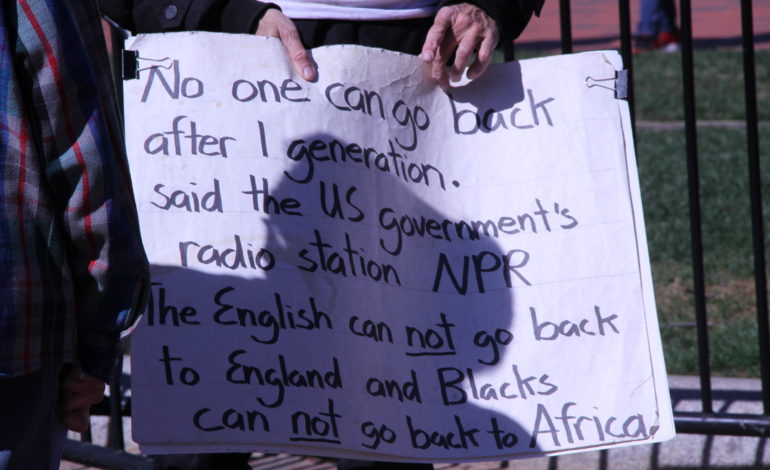 No one can go back
after 1 generation.
said the US government's
radio station NPR
The English can not go back
to England and Blacks
can not go back to Africa.